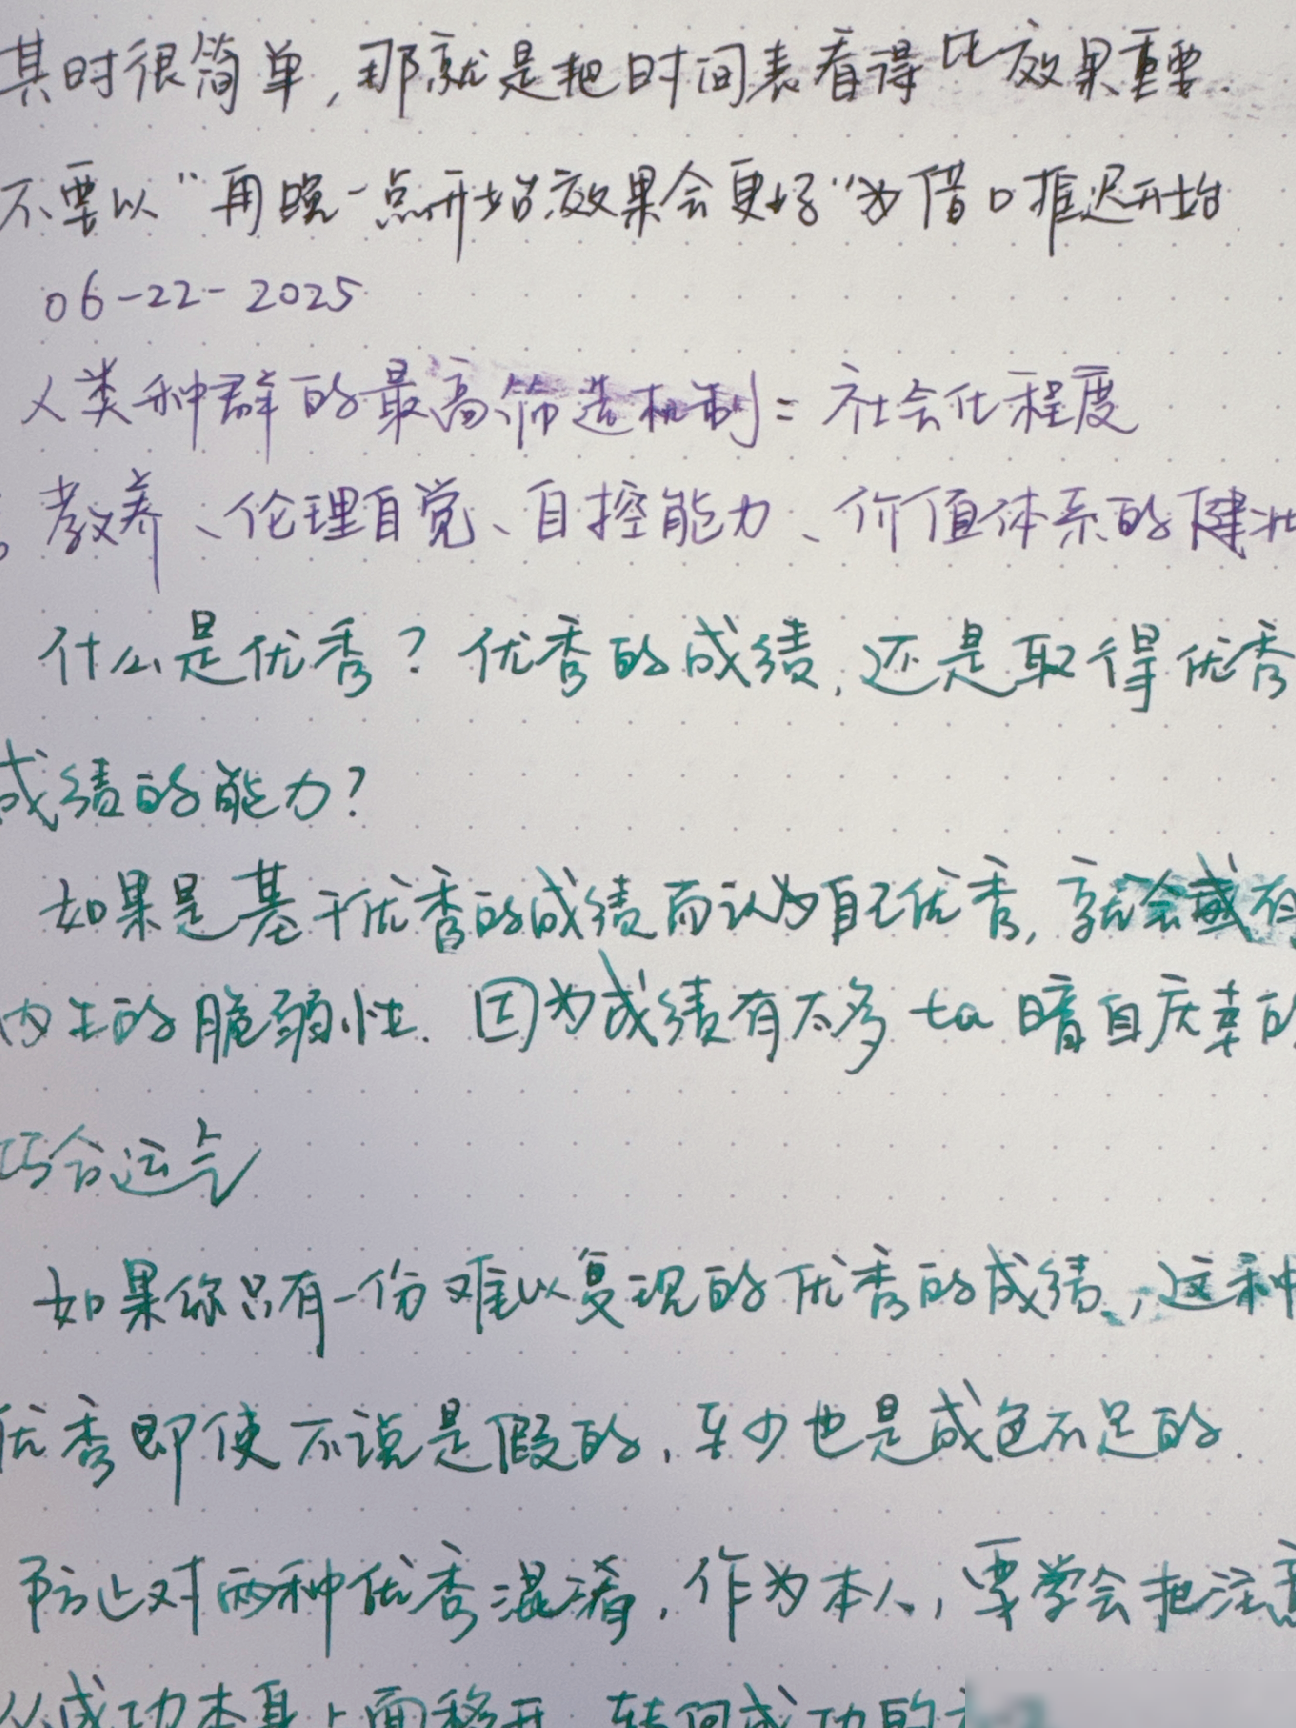 其时很简单,那就是把时间表看得比效果重要.
不要以"再晚一点开始效果会更好"为借口推迟开始
06-22-2025
人类种群的最高筛选机制=社会化程度
教养、伦理自觉、自控能力、价值体系的健壮
什么是优秀?优秀的成绩,还是取得优秀
成绩的能力?
如果是基于优秀的成绩而认为自己优秀,就会藏有
内生的脆弱性.因为成绩有太多ta暗自庆幸的
巧合运气
如果你只有一份难以复现的优秀的成绩,这种
优秀即使不说是假的,至少也是成色不足的.
防止对两种优秀混淆,作为本人,要学会把注意
从成功本身上面移开 转向成功的